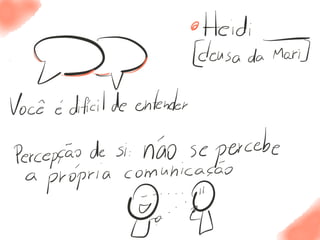 Heidi
[deusa da Mari]
Você é difícil de entender
Percepção de si: não se percebe
a própria comunicação